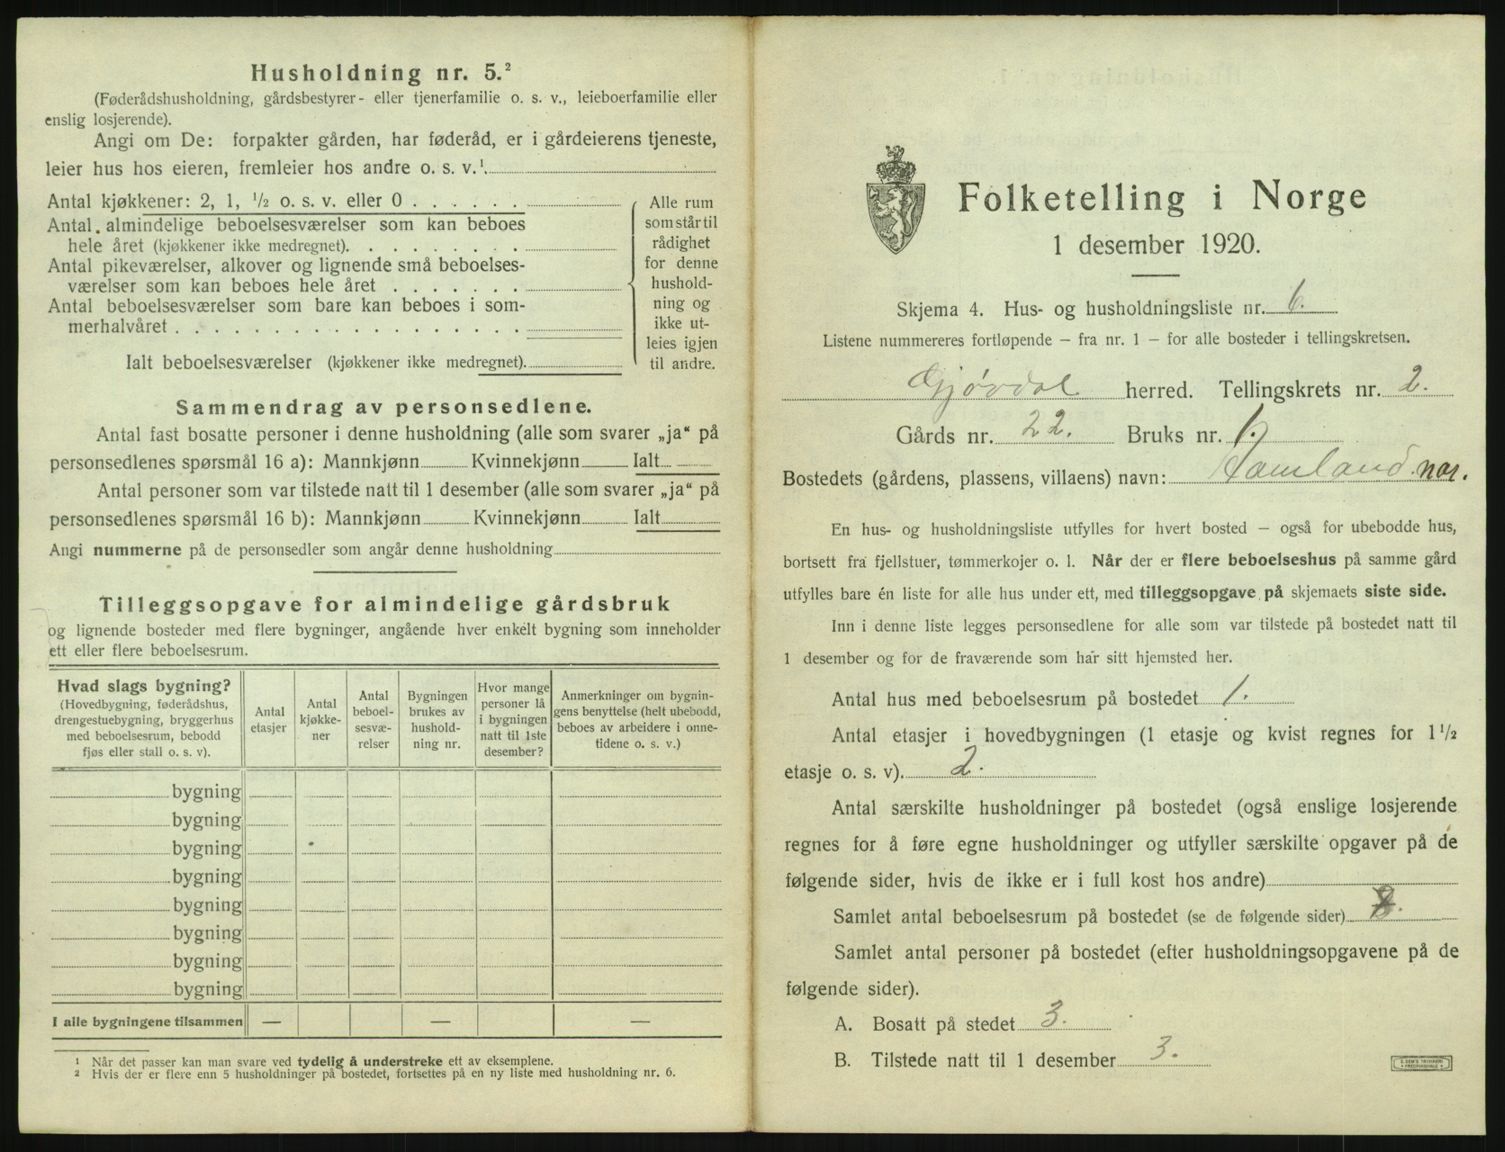 Husholdning nr. 5.²
(Føderådshusholdning, gårdsbestyrer- eller tjenerfamilie o. s. v., leieboerfamilie eller
enslig losjerende).
Angi om De: forpakter gården, har føderåd, er i gårdeierens tjeneste,
leier hus hos eieren, fremleier hos andre o. s. v.¹
Antal kjøkkener: 2, 1, ½ o. s. v. eller 0 . . . . . .
Antal almindelige beboelsesværelser som kan beboes
hele året (kjøkkener ikke medregnet). . . . . . . . .
Antal pikeværelser, alkover og lignende små beboelses-
værelser som kan beboes hele året . . . . . . .
Antal beboelsesværelser som bare kan beboes i som-
merhalvåret . . . . . . . . . . . . . . . . . .
Ialt beboelsesværelser (kjøkkener ikke medregnet).
Alle rum
som står til
rådighet
for denne
hushold-
ning og
ikke ut-
leies igjen
til andre.
Sammendrag av personsedlene.
Antal fast bosatte personer i denne husholdning (alle som svarer „ja“ på
personsedlenes spørsmål 16 a): Mannkjønn Kvinnekjønn Ialt
Antal personer som var tilstede natt til 1 desember (alle som svarer „ja“ på
personsedlenes spørsmål 16 b): Mannkjønn Kvinnekjønn Ialt
Angi nummerne på de personsedler som angår denne husholdning
Tilleggsopgave for almindelige gårdsbruk
og lignende bosteder med flere bygninger, angående hver enkelt bygning som inneholder
ett eller flere beboelsesrum.
Hvad slags bygning?
(Hovedbygning, føderådshus,
drengestuebygning, bryggerhus
med beboelsesrum, bebodd
fjøs eller stall o. s. v).
Antal
etasjer
Antal
kjøkke-
ner
Antal
beboel-
sesvæ-
relser
Bygningen
brukes av
hushold-
ning nr.
Hvor mange
personer lå
i bygningen
natt til 1ste
desember?
Anmerkninger om bygnin-
gens benyttelse (helt ubebodd,
beboes av arbeidere i onne-
tidene o. s. v.)
bygning
bygning
bygning
bygning
bygning
bygning
bygning
bygning
I alle bygningene tilsammen — — —
¹ Når det passer kan man svare ved tydelig å understreke ett av eksemplene.
² Hvis der er flere enn 5 husholdninger på bostedet, fortsettes på en ny liste med husholdning nr. 6.
Folketelling i Norge
1 desember 1920.
Skjema 4. Hus- og husholdningsliste nr. 6.
Listene nummereres fortløpende — fra nr. 1 — for alle bosteder i tellingskretsen.
Gjøvdal herred. Tellingskrets nr. 2.
Gårds nr. 22. Bruks nr. 1.
Bostedets (gårdens, plassens, villaens) navn: Ramland nor.
En hus- og husholdningsliste utfylles for hvert bosted — også for ubebodde hus,
bortsett fra fjellstuer, tømmerkojer o. l. Når der er flere beboelseshus på samme gård
utfylles bare én liste for alle hus under ett, med tilleggsopgave på skjemaets siste side.
Inn i denne liste legges personsedlene for alle som var tilstede på bostedet natt til
1 desember og for de fraværende som har sitt hjemsted her.
Antal hus med beboelsesrum på bostedet 1.
Antal etasjer i hovedbygningen (1 etasje og kvist regnes for 1½
etasje o. s. v). 2.
Antal særskilte husholdninger på bostedet (også enslige losjerende
regnes for å føre egne husholdninger og utfyller særskilte opgaver på de
følgende sider, hvis de ikke er i full kost hos andre)
Samlet antal beboelsesrum på bostedet (se de følgende sider)
Samlet antal personer på bostedet (efter husholdningsopgavene på de
følgende sider).
A. Bosatt på stedet 3.
B. Tilstede natt til 1 desember 3.